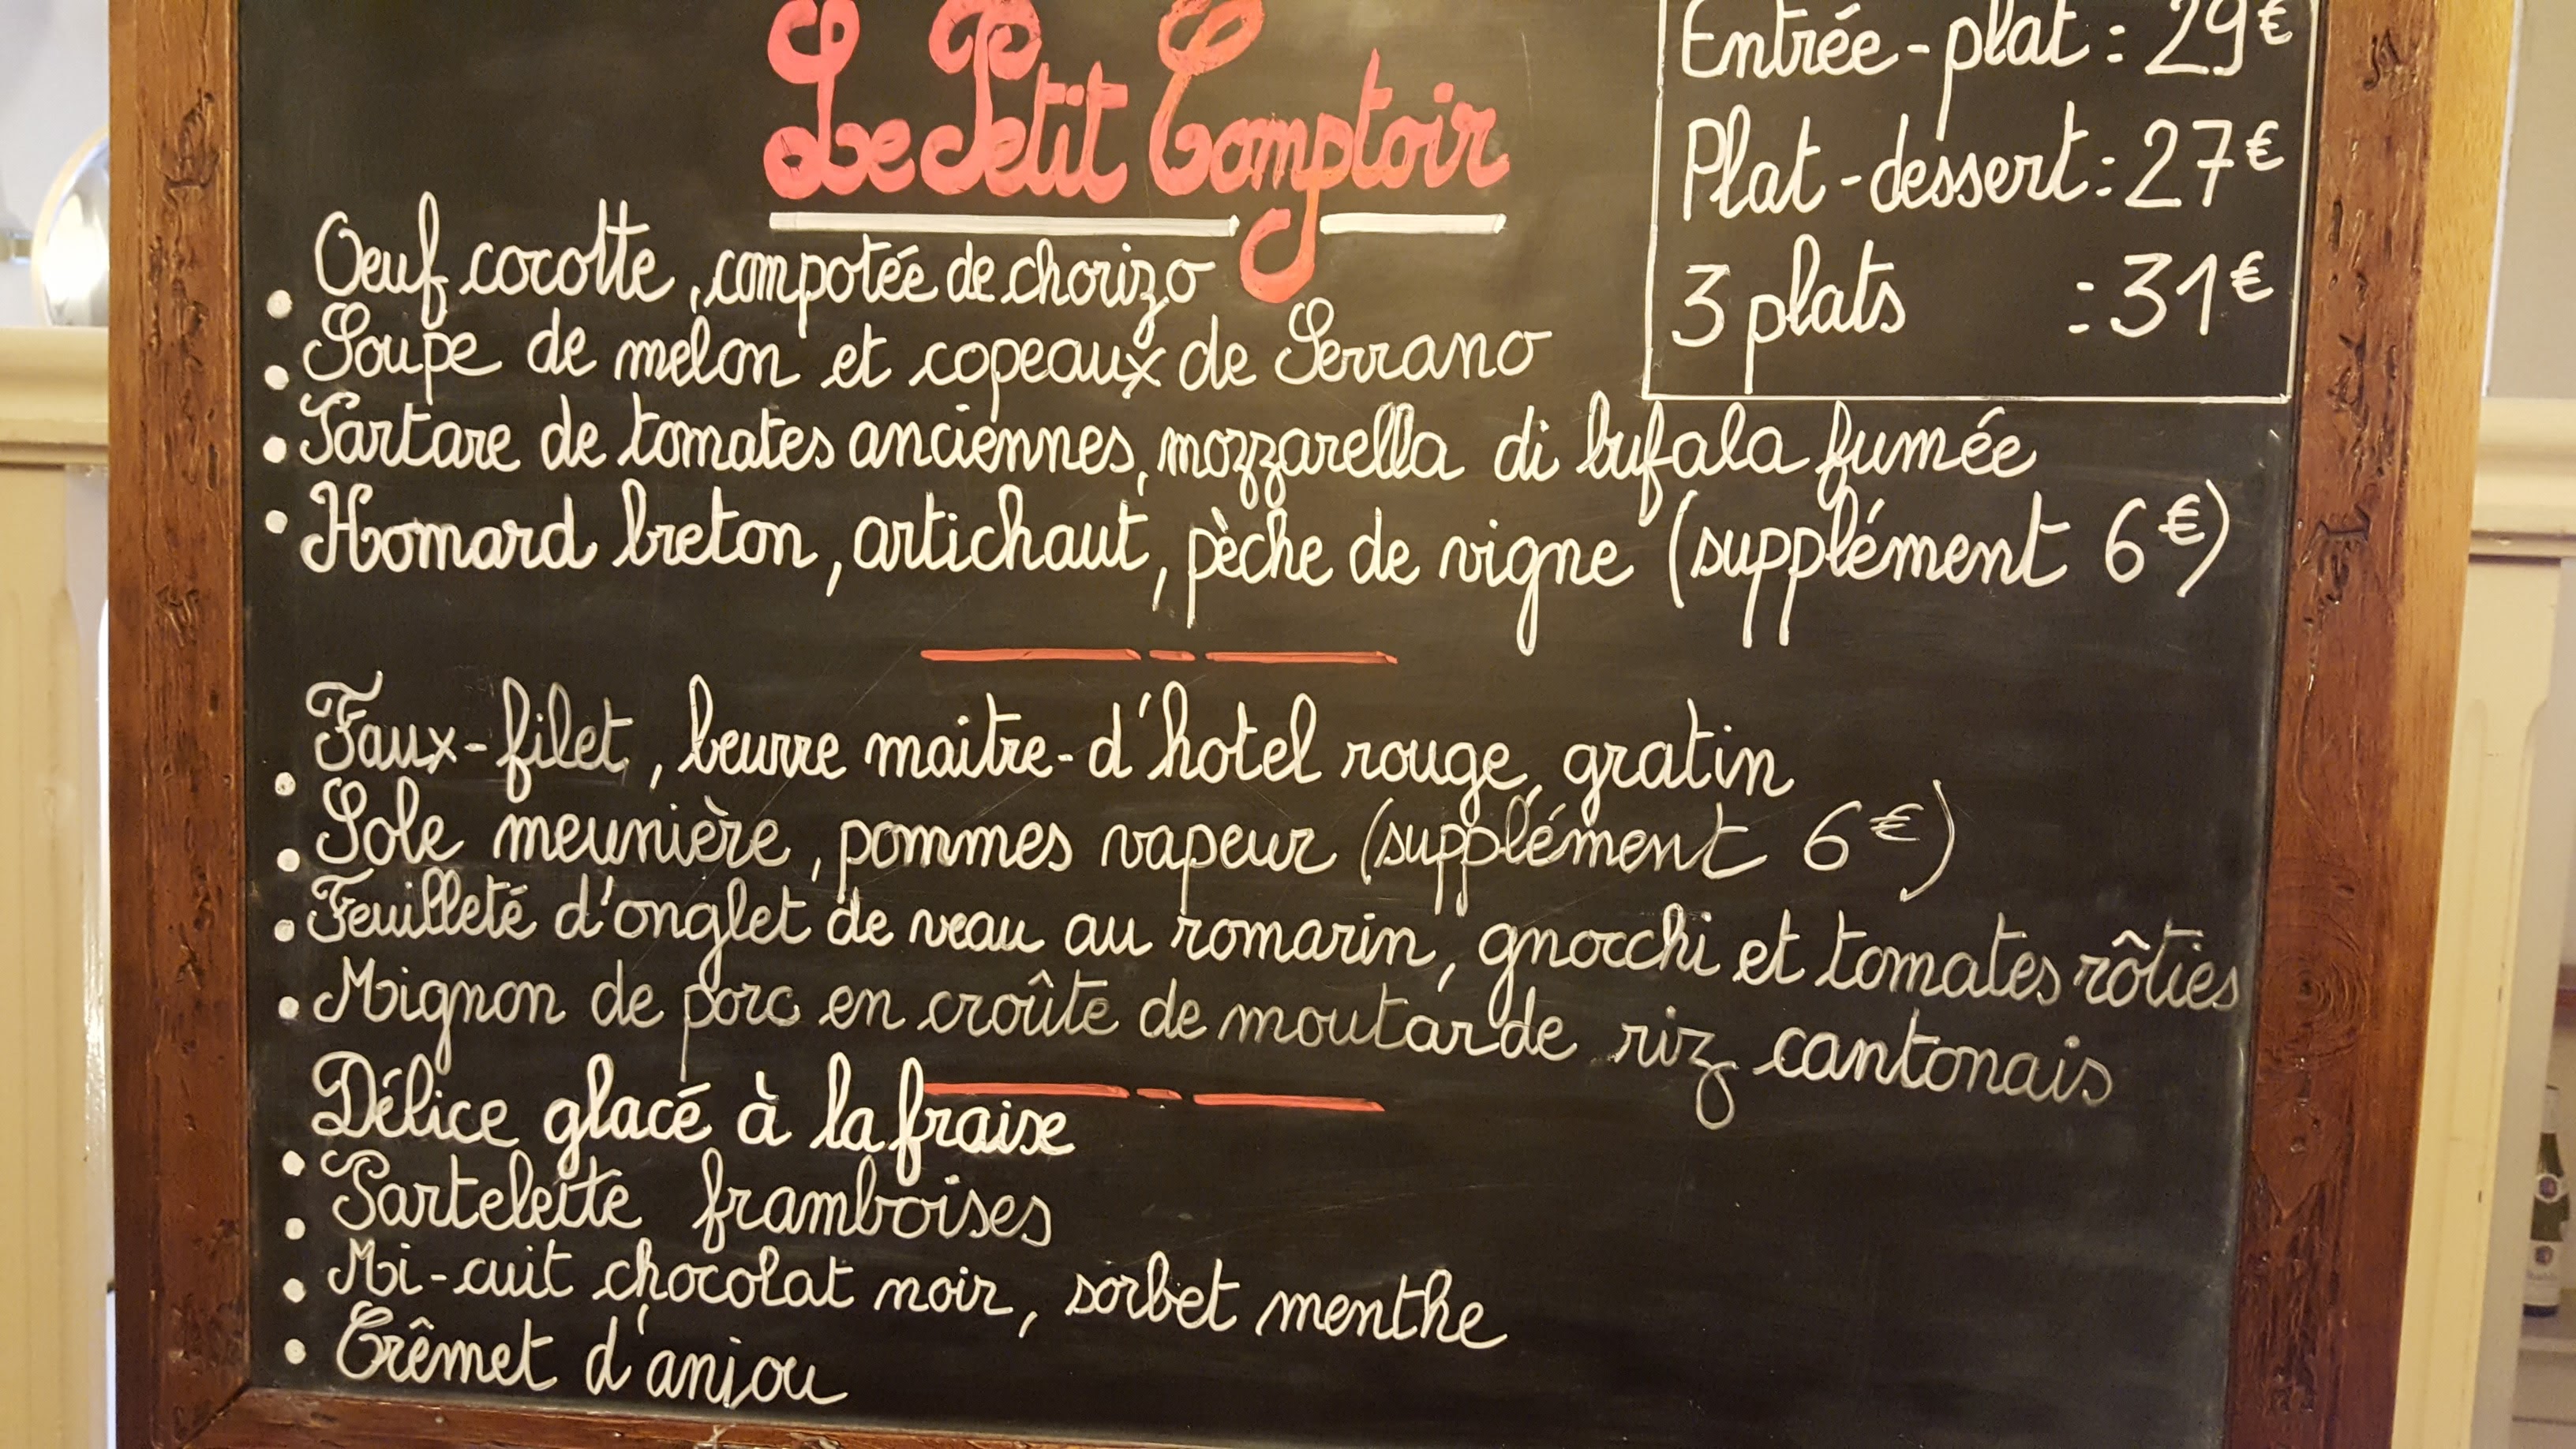 Le Petit Comptoir
Entrée-plat : 29€
Plat-dessert : 27€
3 plats = 31€
Oeuf cocotte, compotée de chorizo
• Soupe de melon et copeaux de Serrano
• Tartare de tomates anciennes, mozzarella di bufala fumée
• Homard breton, artichaut, pèche de vigne (supplément 6€)
•
Faux-filet, beurre maitre-d'hotel rouge, gratin
• Sole meunière, pommes vapeur (supplément 6€)
• Feuilleté d'onglet de veau au romarin, gnocchi et tomates rôties
• Mignon de porc en croûte de moutarde riz cantonais
•
Délice glacé à la fraise
• Tartelette framboises
• Mi-cuit chocolat noir, sorbet menthe
• Crêmet d'anjou
•